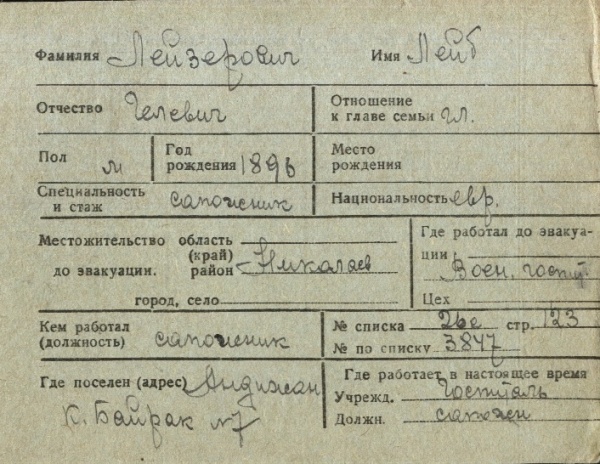 Фамилия Лейзерович Имя Лейб
Отчество Гелевич
Отношение
к главе семьи гл.
Пол м
Год
рождения 1896
Место
рождения
Специальность
и стаж сапожник
Национальность евр.
Местожительство область
(край)
до эвакуации. район Николаев
город, село
Где работал до эвакуа-
ции Воен. госпит.
Цех
Кем работал
(должность) сапожник
№ списка 26е стр. 123
№ по списку 3847
Где поселен (адрес) Андижан
К. Байрак №7
Где работает в настоящее время
Учрежд. Госпиталь
Должн. сапожн